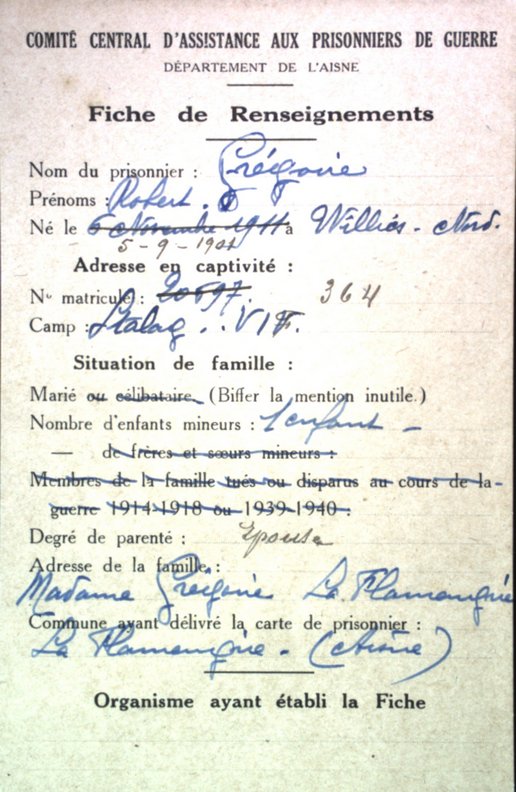 COMITÉ CENTRAL D'ASSISTANCE AUX PRISONNIERS DE GUERRE
DÉPARTEMENT DE L'AISNE
Fiche de Renseignements
Nom du prisonnier : Grégoire
Prénoms : Robert. J
Né le 6 Novembre 1911 à Williès - Nord.
5-9-1901
Adresse en captivité :
No matricule : 20697. 364
Camp : Stalag .. VI F.
Situation de famille :
Marié ou célibataire. (Biffer la mention inutile.)
Nombre d'enfants mineurs : 1 enfant -
— de frères et sœurs mineurs :
Membres de la famille tués ou disparus au cours de la
guerre 1914-1918 ou 1939-1940 :
Degré de parenté : Epouse
Adresse de la famille :
Madame Grégoire La Flamengrie
Commune ayant délivré la carte de prisonnier :
La Flamengrie - (Aisne)
Organisme ayant établi la Fiche